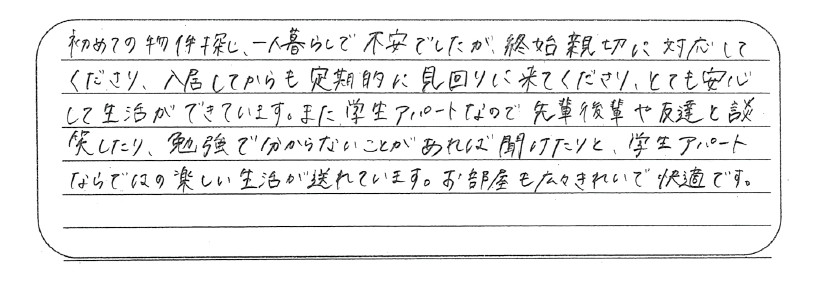 初めての物件探し、一人暮らしで不安でしたが、終始親切に対応して
くださり、入居してからも定期的に見回りに来てくださり、とても安心
して生活ができています。また、学生アパートなので先輩後輩や友達と談
笑したり、勉強で分からないことがあれば聞けたりと、学生アパート
ならではの楽しい生活が送れています。お部屋も広々きれいで快適です。